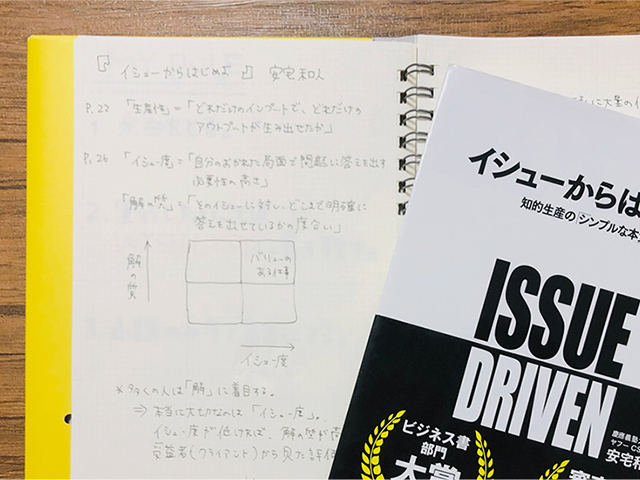 『イシューからはじめよ』 安宅和人
P.22 「生産性」=「どれだけのインプットで、どれだけの
アウトプットが生み出せたか」
P.26 「イシュー度」=「自分のおかれた局面で問題に答えを出す
必要性の高さ」
「解の質」=「そのイシューに対し、どこまで明確に
答えを出せているかの度合い」
解の質
バリューの
ある仕事
イシュー度
※多くの人は「解」に着目する。
⇒ 本当に大切なのは「イシュー度」。
イシュー度が低ければ、解の質が
受益者(クライアント)から見た評価
に大量の
イシューからは
知的生産の「シンプルな本
ISSUE
DRIVEN
ビジネス書
部門
大賞
慶應義塾
ヤフーCS
安宅和